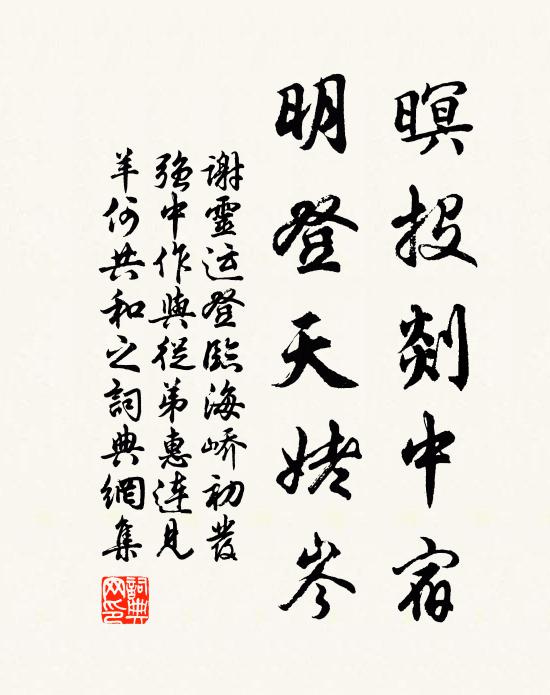 暝投剡中宿
明登天姥岑
謝靈运登臨海嶠初發
強中作與從弟惠連見
羊何共和之詞典網集
詞典網印